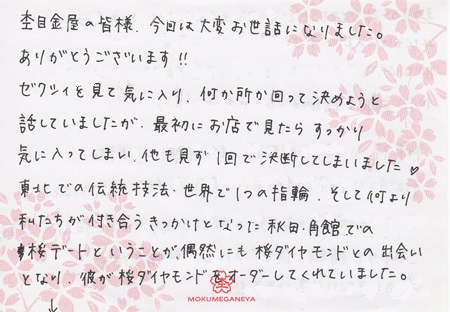 杢目金屋の皆様、今回は大変お世話になりました。
ありがとうございます!!
ゼクシィを見て気に入り、何か所か回って決めようと
話していましたが、最初にお店で見たらすっかり
気に入ってしまい、他も見ず1回で決断してしまいました♡
東北での伝統技法・世界で1つの指輪、そして何より
私たちが付き合うきっかけとなった秋田・角館での
桜デートということが、偶然にも桜ダイヤモンドとの出会い
となり、彼が桜ダイヤモンドをオーダーしてくれていました。
↓
MOKUMEGANEYA